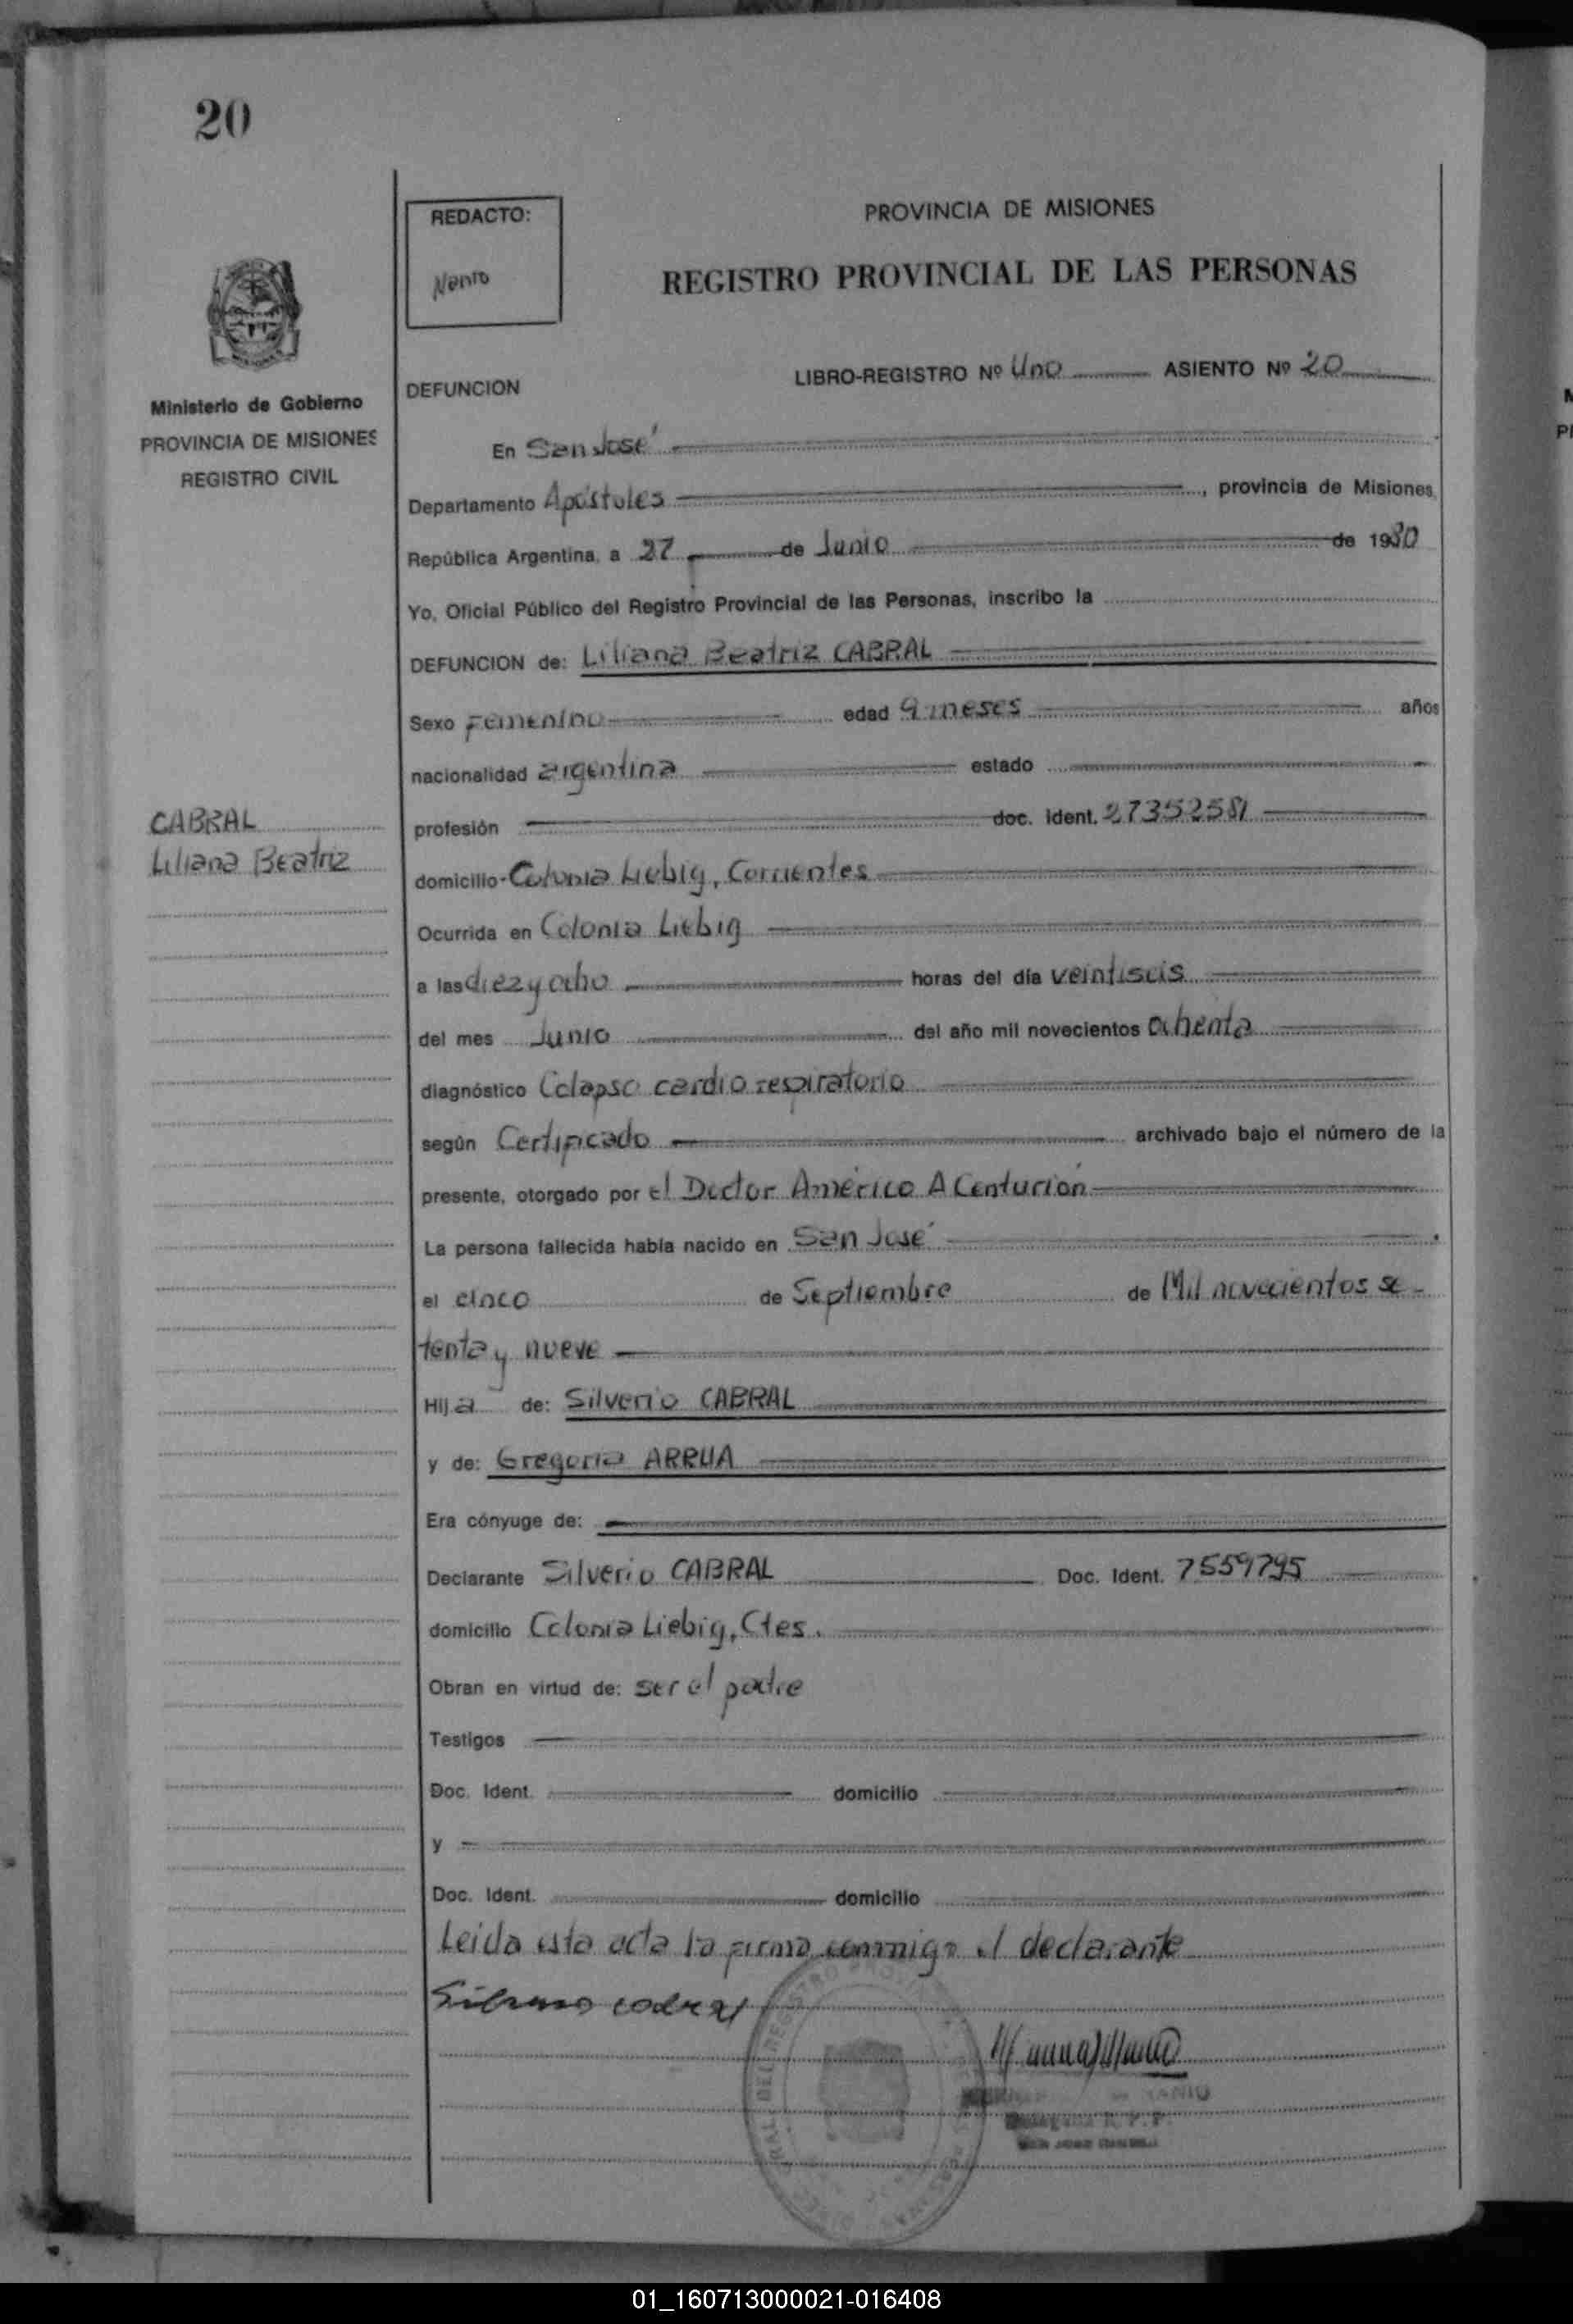 20
REDACTO:
PROVINCIA DE MISIONES
REGISTRO PROVINCIAL DE LAS PERSONAS
Ministerio de Gobierno
PROVINCIA DE MISIONES
REGISTRO CIVIL
DEFUNCION
LIBRO-REGISTRO Nº Uno ASIENTO Nº 20
En San José
Departamento Apóstoles, provincia de Misiones,
República Argentina, a 27 de Junio de 1980
Yo, Oficial Público del Registro Provincial de las Personas, inscribo la
DEFUNCION de: Liliana Beatriz CABRAL
Sexo Femenino edad 9 meses años
nacionalidad argentina estado
CABRAL
Liliana Beatriz
profesión doc. Ident. 27352581
domicilio Colonia Liebig, Corrientes
Ocurrida en Colonia Liebig
a las diez y ocho horas del día veintiseis
del mes Junio del año mil novecientos ochenta
diagnóstico Colapso cardio respiratorio
según Certificado archivado bajo el número de la
presente, otorgado por el Doctor Américo A Centurión
La persona fallecida había nacido en San José
el cinco de Septiembre de Mil novecientos se-
tenta y nueve
Hija de: Silverio CABRAL
y de: Gregoria ARRUA
Era cónyuge de:
Declarante Silverio CABRAL Doc. Ident. 7559795
domicilio Colonia Liebig, Ctes.
Obran en virtud de: ser el padre
Testigos
Doc. Ident. domicilio
y
Doc. Ident. domicilio
Leida esta acta la firma conmigo el declarante
01_160713000021-016408